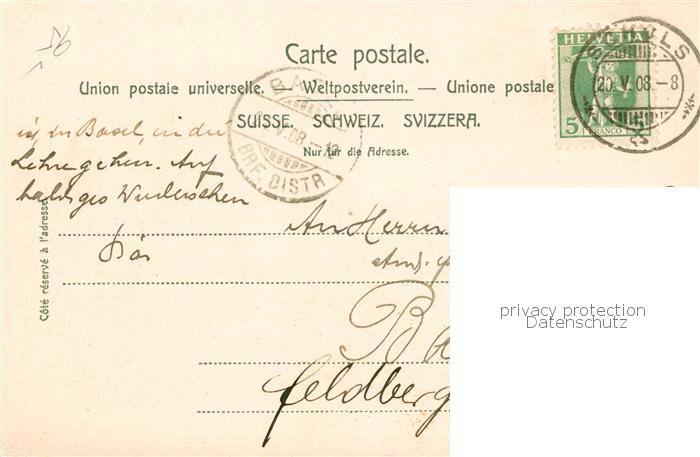 56
Carte postale.
Union postale universelle. — Weltpostverein. — Unione postale
SUISSE. SCHWEIZ. SVIZZERA.
Nur für die Adresse.
Côté réservé à l'adresse.
HELVETIA
5
FRANCO
SCHULS
20.V.08.–8
BRF. DISTR
in Basel, in die
Lehre gehen. Auf
baldiges Wiedersehen
An Herrn
Ba
Feldberg
privacy protection
Datenschutz